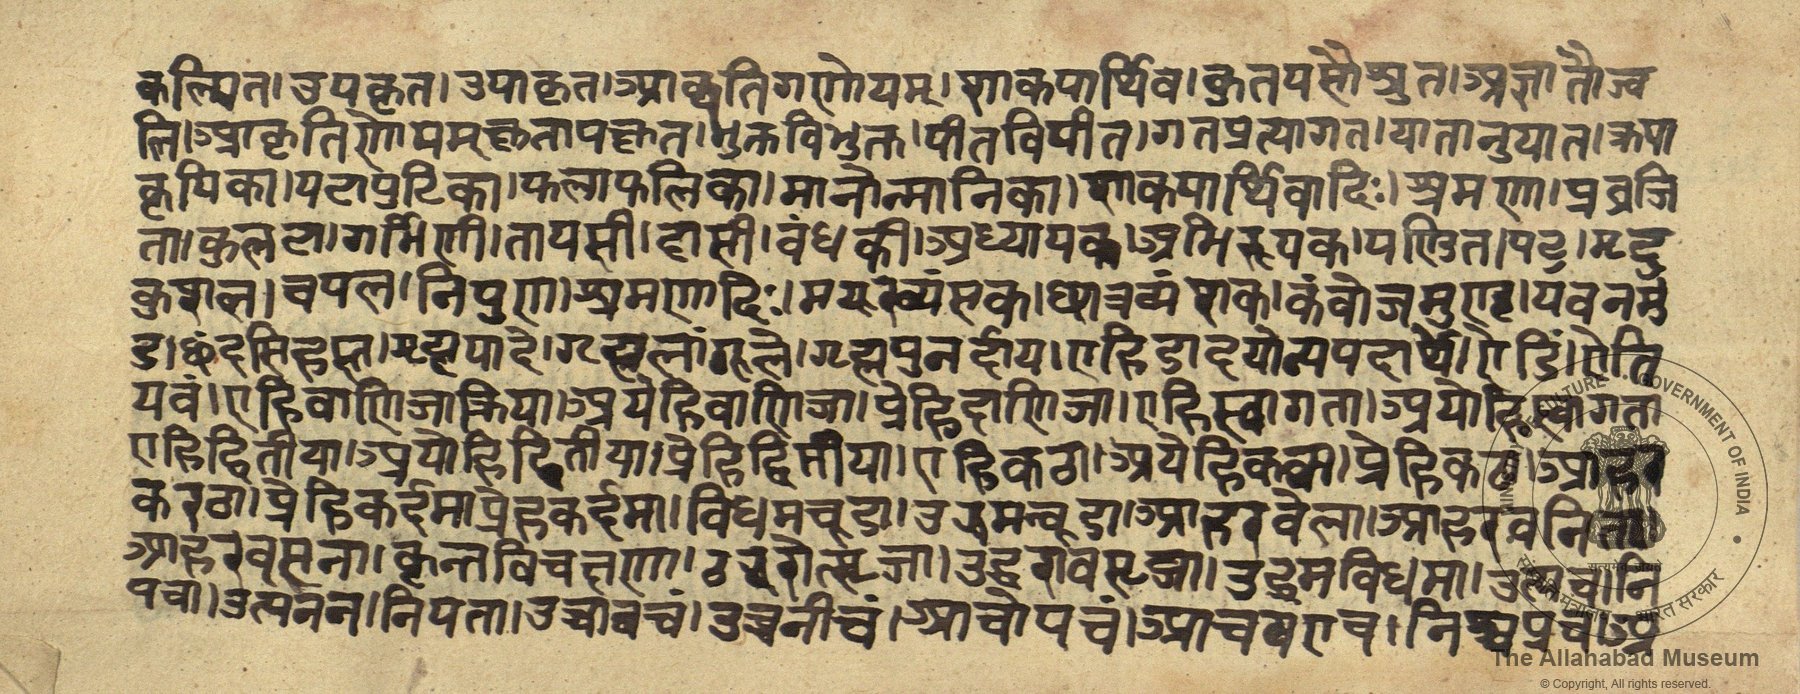 कल्पित।उपकृत।उपाकृत।आकृतिगणोयम्।शाकपार्थिव।कुतपसौश्रुत।अजातौल्व
लि।आकृतिगणोयम्कृतापकृत।भुक्तविभुक्त।पीतविपीत।गतप्रत्यागत।यातानुयात।क्रया
क्रयिका।पुटापुटिका।फलाफलिका।मानोन्मानिका।शाकपार्थिवादिः।श्रमणा।प्रव्रजि
ता।कुलटा।गर्भिणी।तापसी।दासी।बंधकी।अध्यापक।अभिरूपक।पण्डित।पटु।मृदु
कुशल।चपल।निपुण।श्रमणादिः।मयूरव्यंसक।छात्रव्यंसक।कंबोजमुण्ड।यवनमुं
ड।छंदसिहस्त।गृह्यपादे।गृह्यलांगूले।गृह्यपुनर्दाय।एहिडादयोन्यपदार्थे।एडिं।एति
यवं।एहिवाणिजाक्रिया।अपेहिवाणिजा।प्रेहिवाणिजा।एहिस्वागता।अपेहिस्वागता
एहिद्वितीया।अपेहिद्वितीया।प्रेहिद्वितीया।एहिकटा।अपेहिकटा।प्रेहिकटा।आहर
करटा।प्रेहिकर्दमा।प्रेहकर्दमा।विधमचूडा।उद्धमचूडा।आहरचेला।आहरवनिता
आहरवसना।कृन्तविचक्षणा।उद्धरोत्सृजा।उद्धरावसृजा।उद्धमविधमा।उत्पचानि
पचा।उत्पतन।निपता।उच्चावचं।उच्चनीचं।आचोपचं।आचपराच।निश्चप्रचं।अ
The Allahabad Museum
© Copyright, All rights reserved.
MINISTRY OF CULTURE • GOVERNMENT OF INDIA
सत्यमेव जयते
संस्कृति मंत्रालय • भारत सरकार